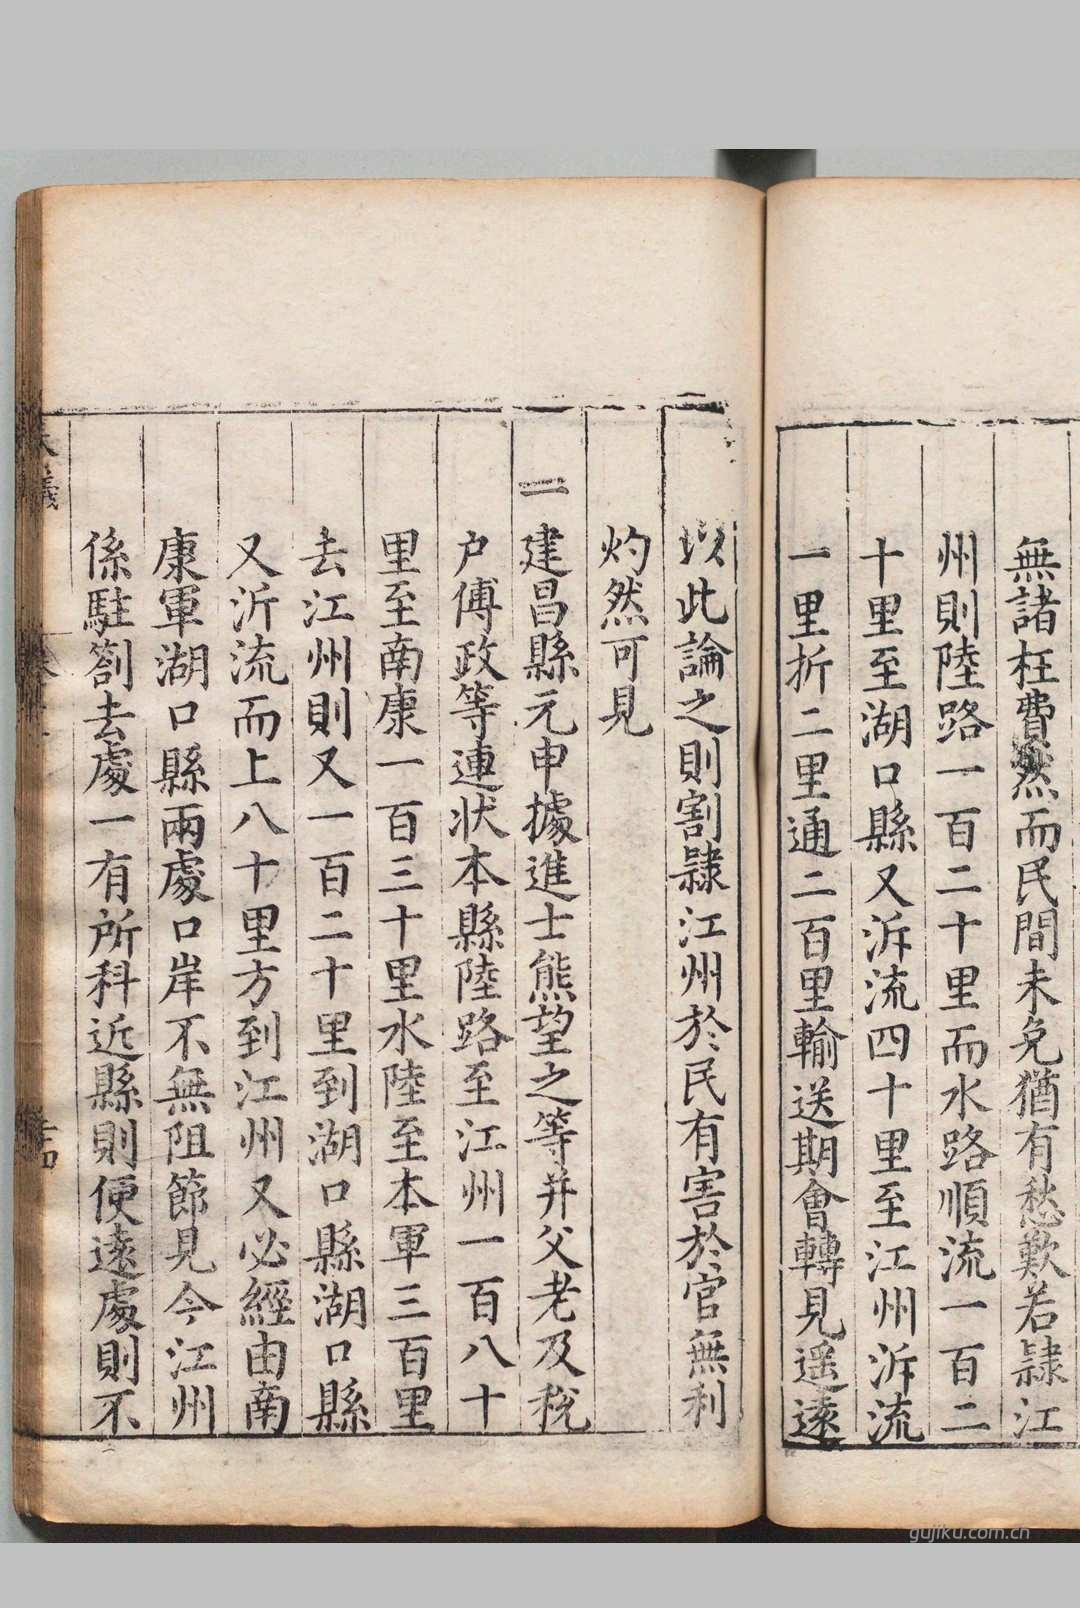 無諸枉費然而民間未免猶有愁歎若隷江
州則陸路一百二十里而水路順流一百二
十里至湖口縣又泝流四十里至江州泝流
一里折二里通二百里輸送期會轉見遥遠
以此論之則割隷江州於民有害於官無利
灼然可見
一建昌縣元申據進士熊望之等并父老及税
户傅政等連状本縣陸路至江州一百八十
里至南康一百三十里水陸至本軍三百里
去江州則又一百二十里到湖口縣湖口縣
又泝流而上八十里方到江州又必經由南
康軍湖口縣兩處口岸不無阻節見今江州
係駐劄去處一有所科近縣則便遠處則不
gujiku.com.cn